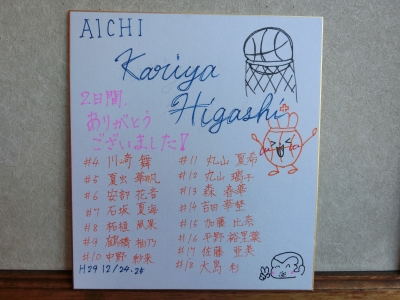 AICHI
Kariya
Higashi
2日間
ありがとう
ございました!!
#4 川崎 舞
#5 夏虫 華帆
#6 安部 花音
#7 石坂 夏海
#8 柘植 風菜
#9 鶴橋 柚乃
#10 中野 紗来
#11 丸山 夏希
#12 丸山 陽子
#13 森 春華
#14 吉田 夢埜
#15 加藤 比奈
#16 平野 裕里菜
#17 佐藤 亜美
#18 大島 杉
H29 12/24.25